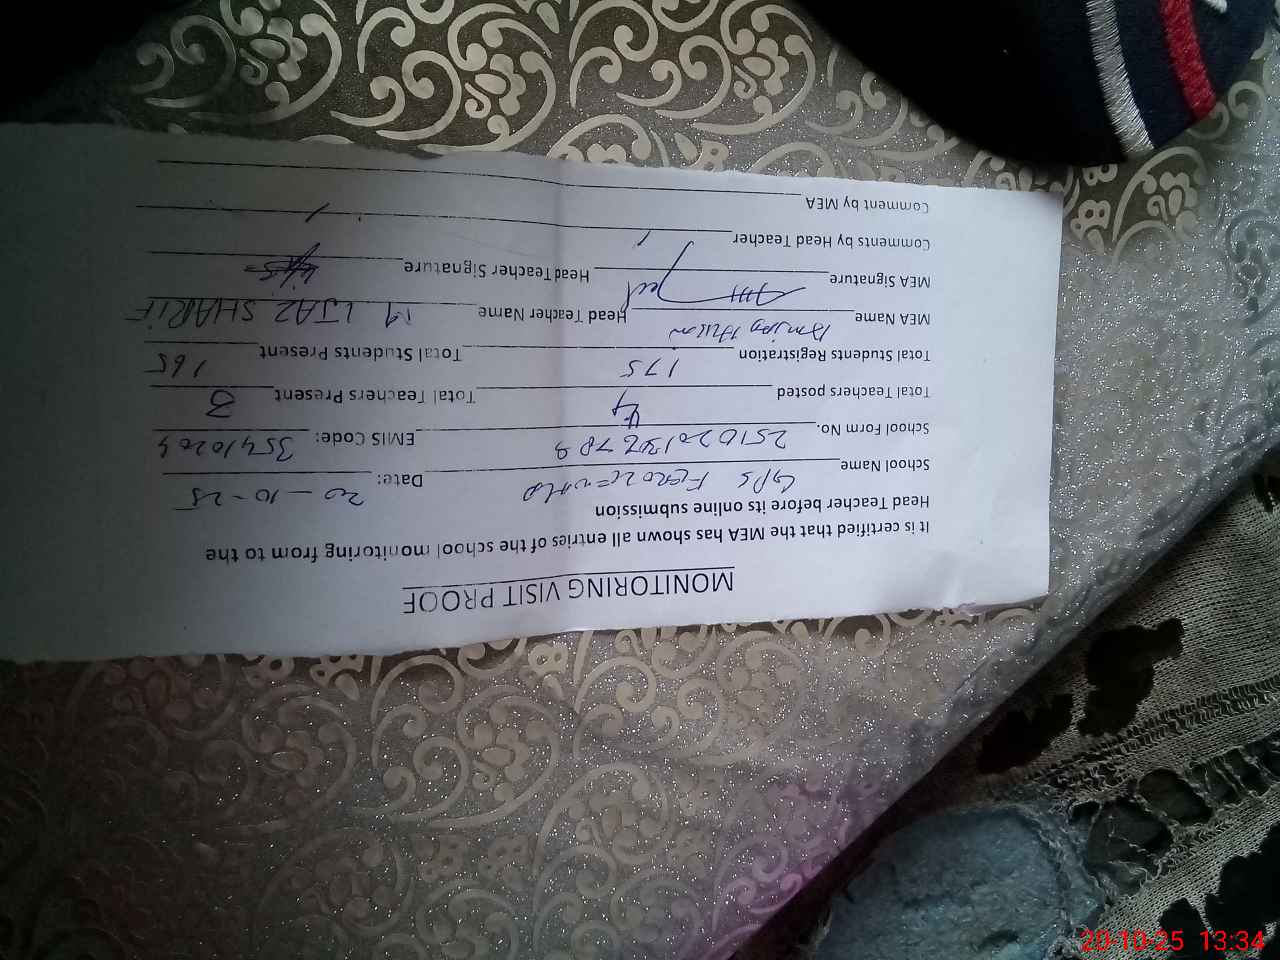 MONITORING VISIT PROOF
It is certified that the MEA has shown all entries of the school monitoring from to the
Head Teacher before its online submission
School Name GPS Date: 20-10-25
School Form No. EMIS Code: 35410204
Total Teachers posted 4 Total Teachers Present 3
Total Students Registration 175 Total Students Present 165
MEA Name Head Teacher Name M IJAZ SHARIF
MEA Signature Head Teacher Signature
Comments by Head Teacher
Comment by MEA
20-10-25 13:34